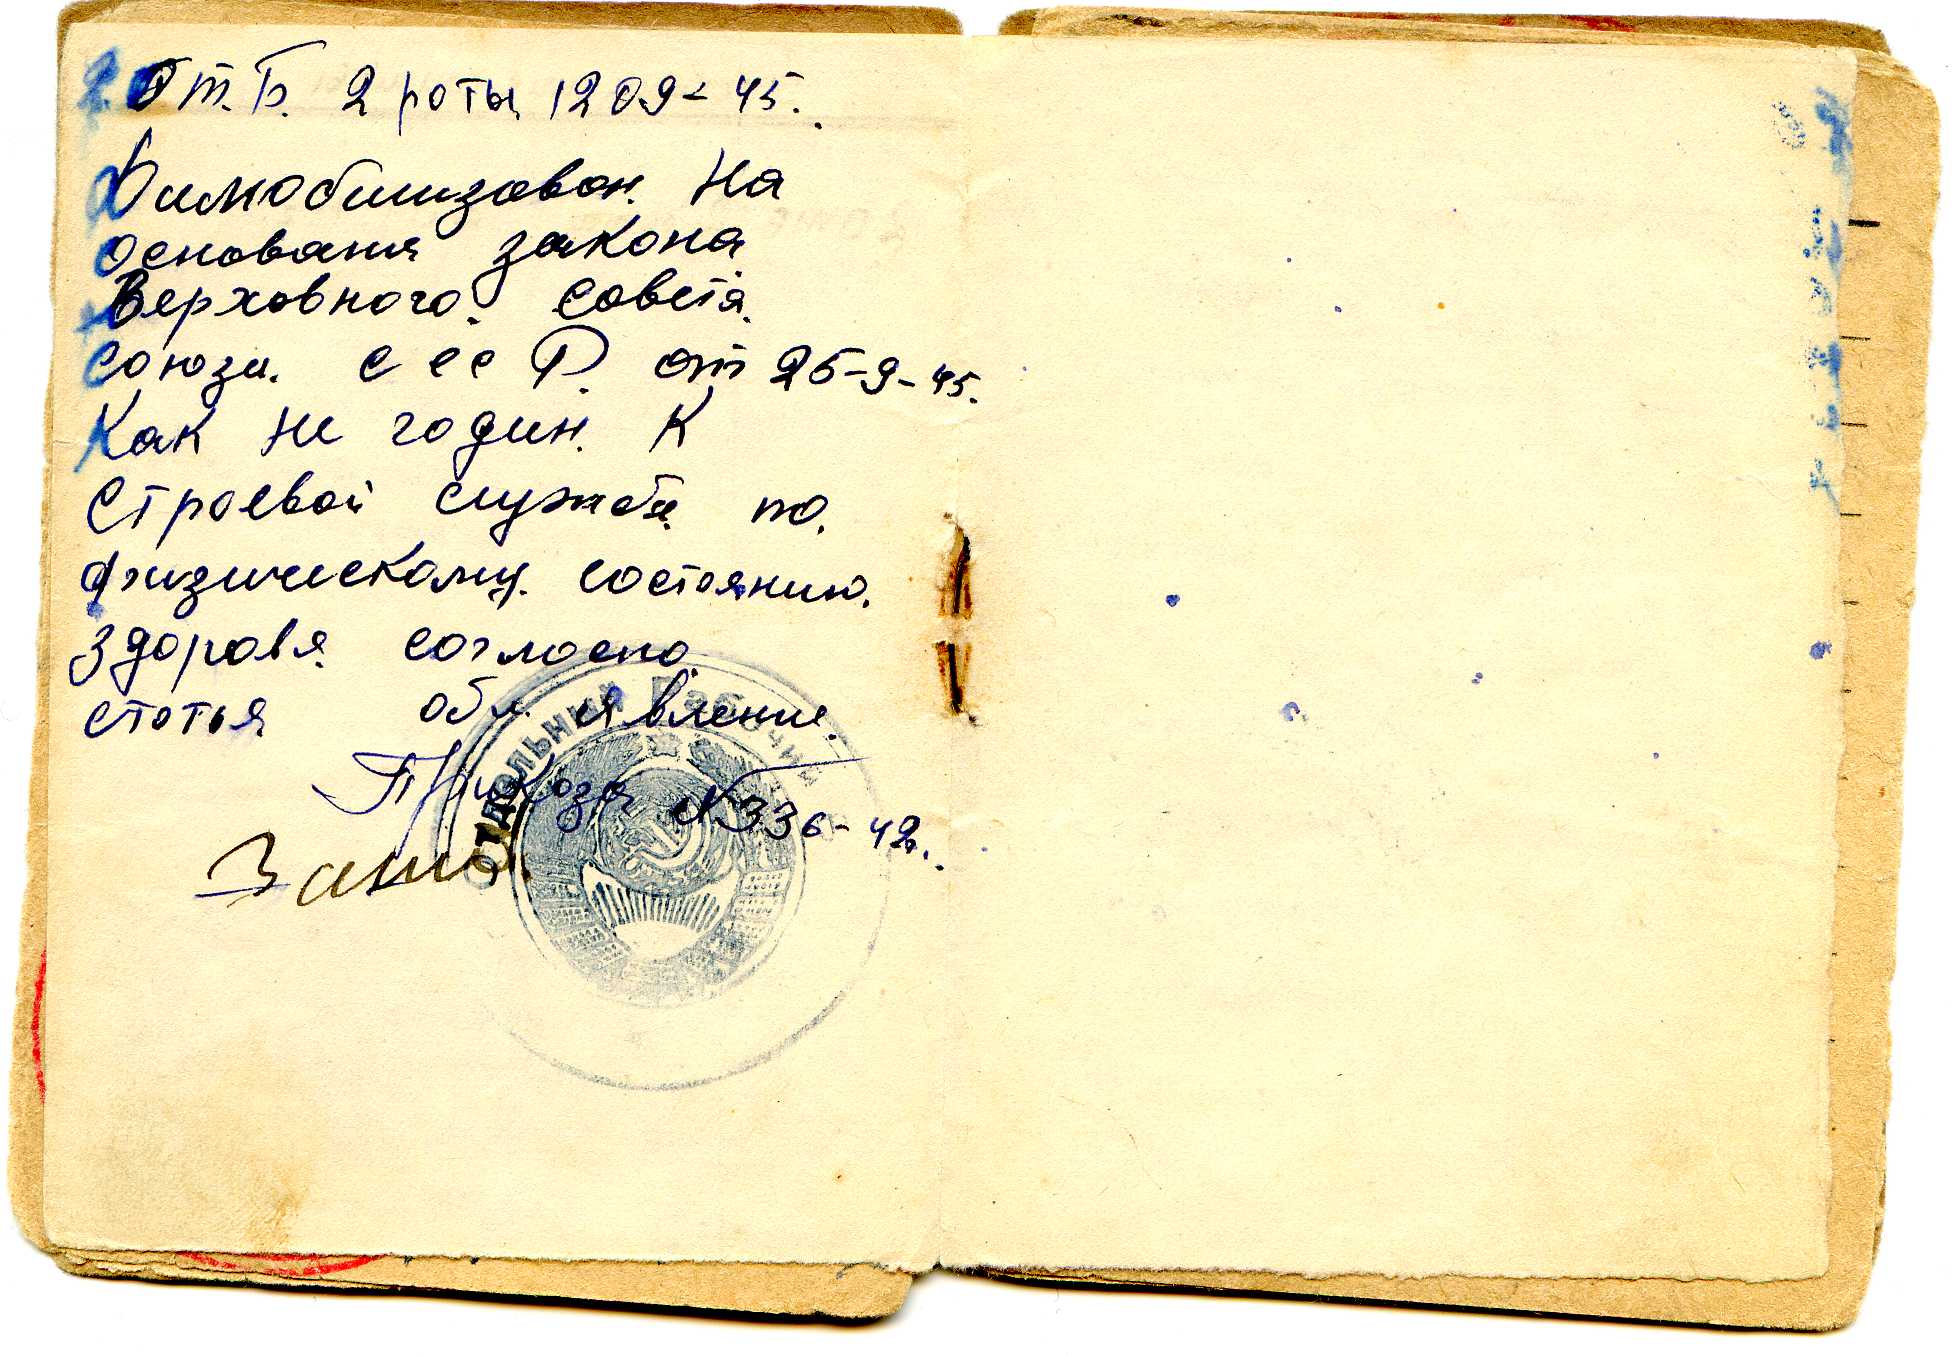 От.Б. 2 роты 1209-45.
Димобилизован. На
основания закона
Верховного. совета.
союза. С С С Р. от 25-9-45.
Как не годин. К
строевой службе по.
физическому. состоянию.
здоровя согласно.
статья объявление.
Приказа №336-42.
ОТДЕЛЬНЫЙ РАБОЧИЙ